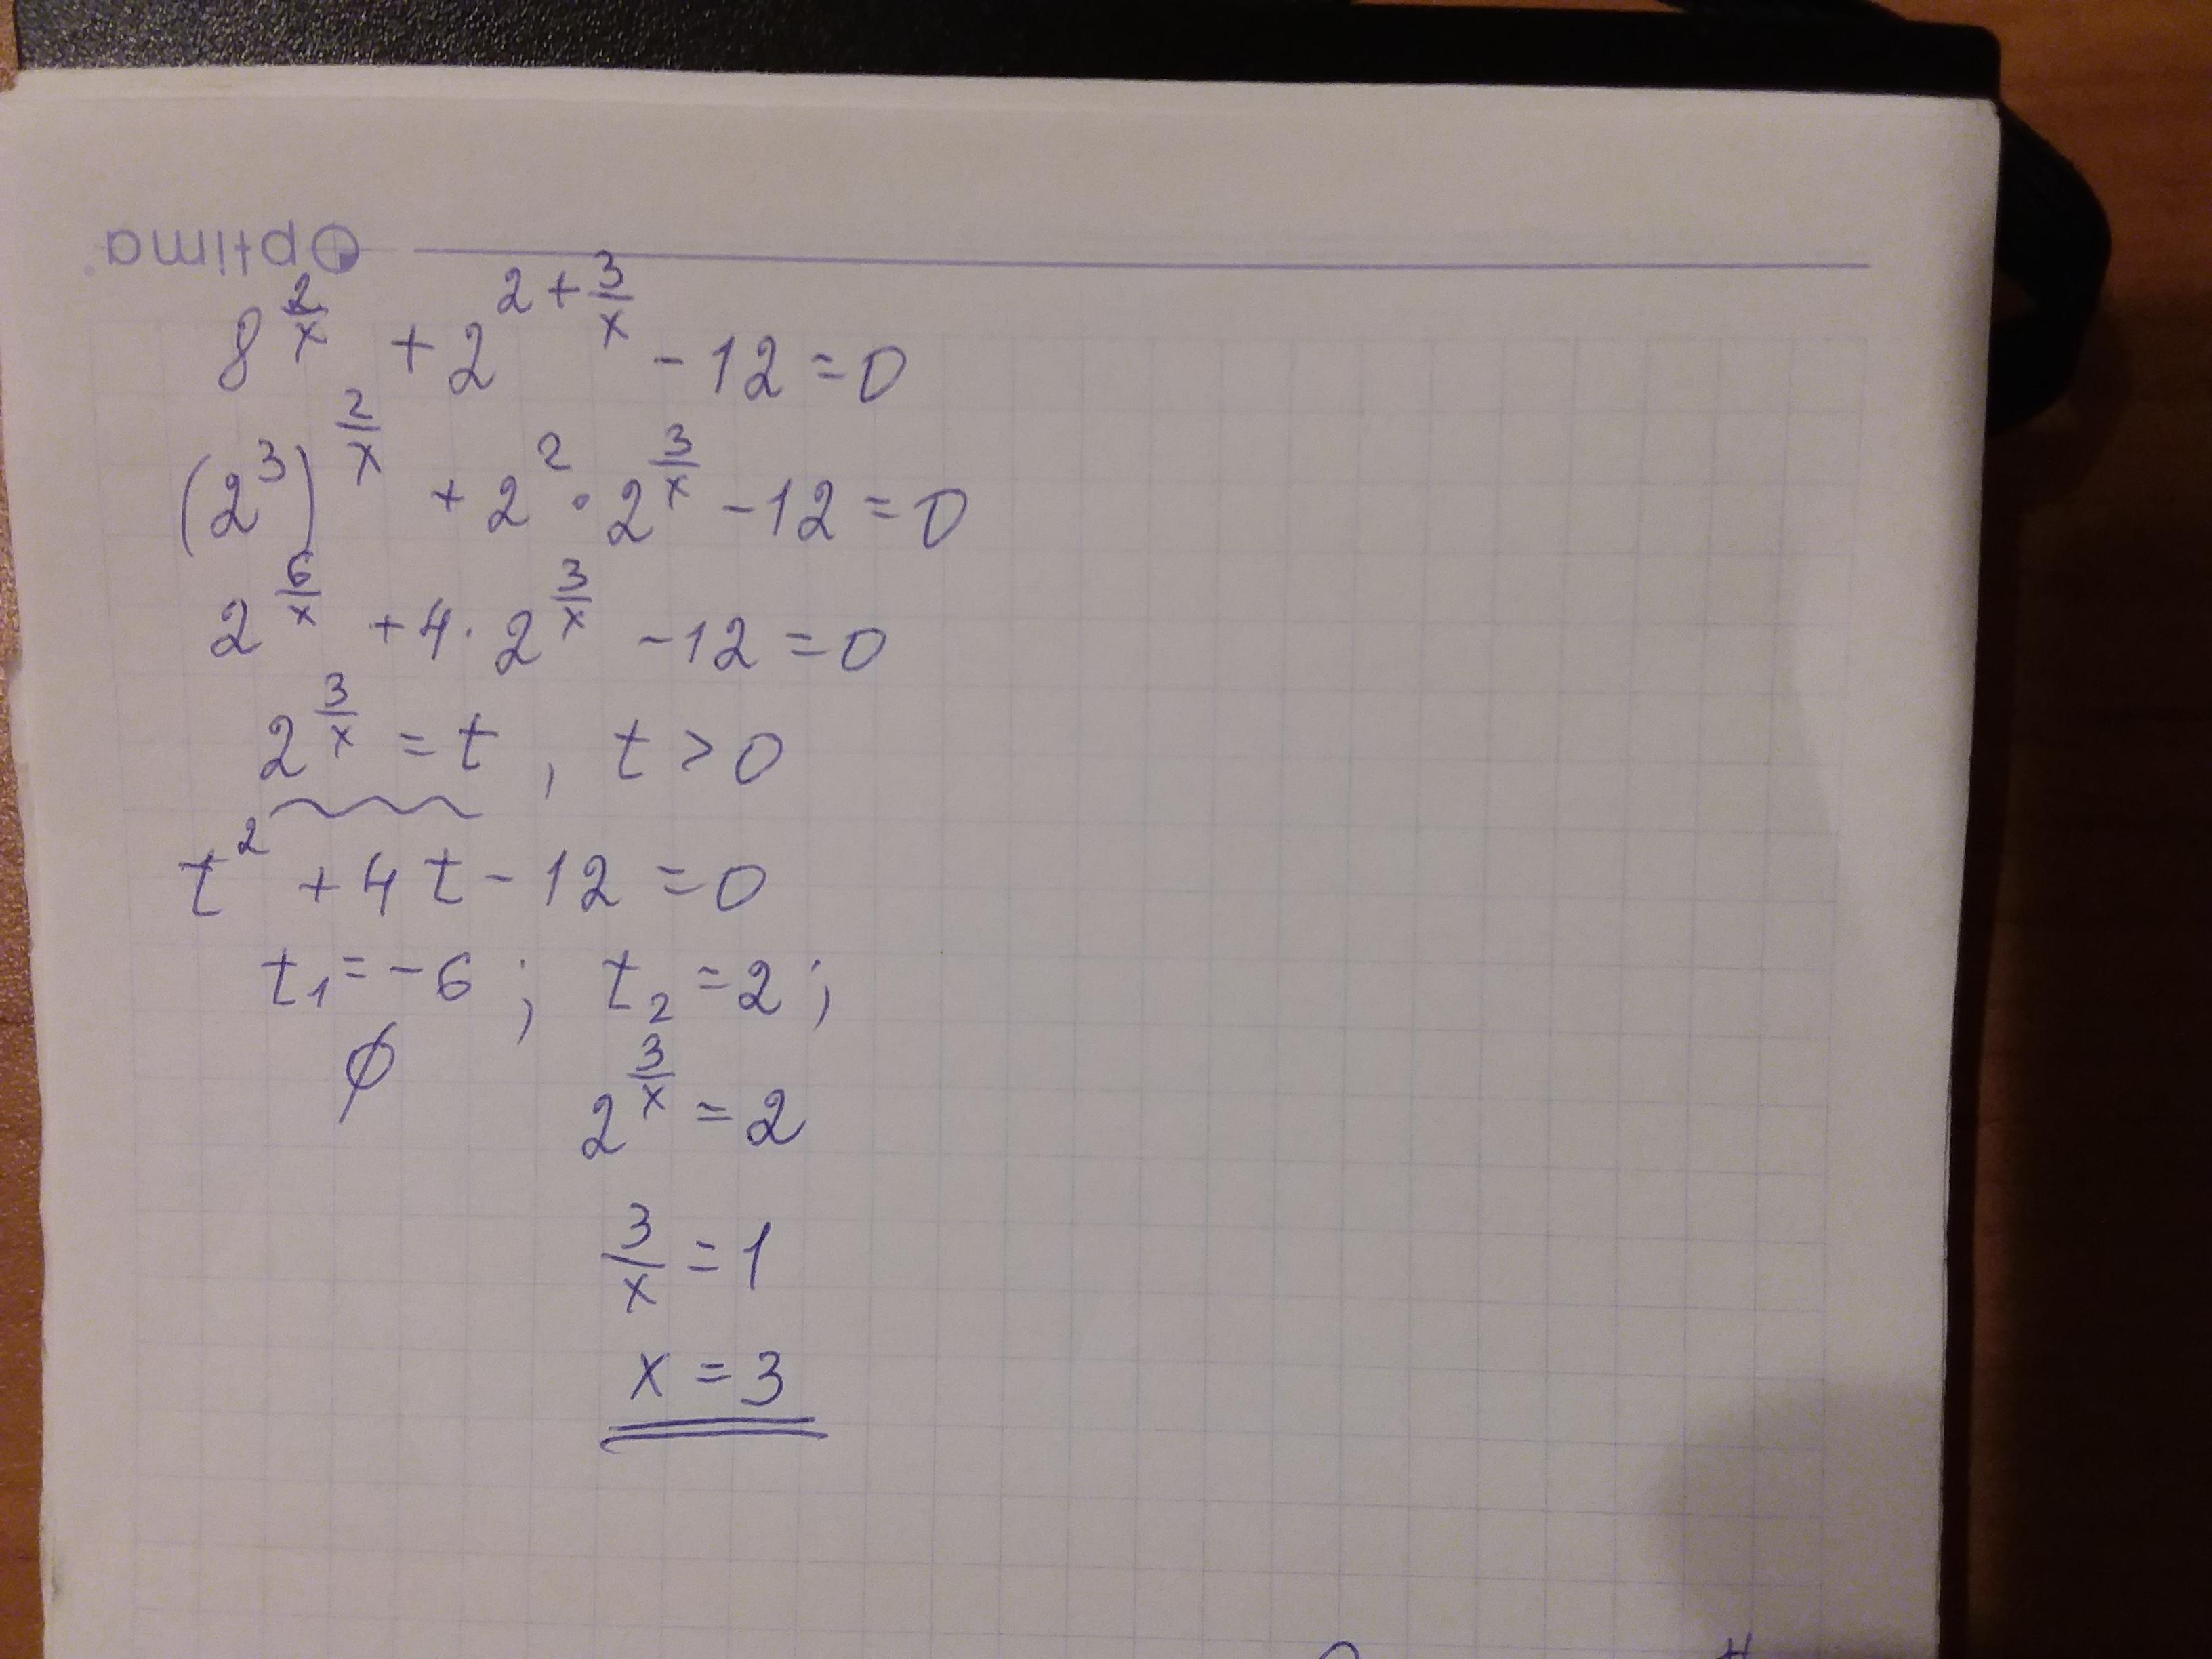 Optima
8^(2/x) + 2^(2+3/x) - 12 = 0
(2^3)^(2/x) + 2^2 · 2^(3/x) - 12 = 0
2^(6/x) + 4 · 2^(3/x) - 12 = 0
2^(3/x) = t , t > 0
t^2 + 4t - 12 = 0
t₁ = -6 ; t₂ = 2 ;
∅ 2^(3/x) = 2
3/x = 1
x = 3